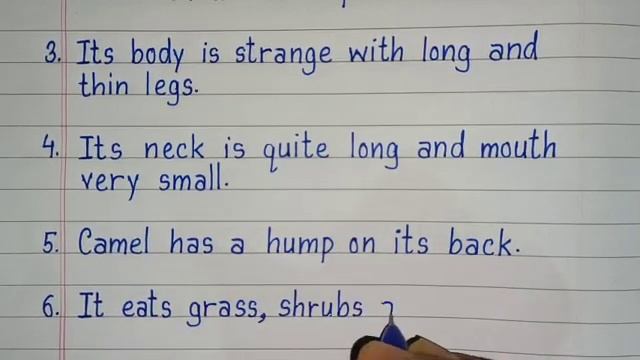 3. Its body is strange with long and
thin legs.
4. Its neck is quite long and mouth
very small.
5. Camel has a hump on its back.
6. It eats grass, shrubs